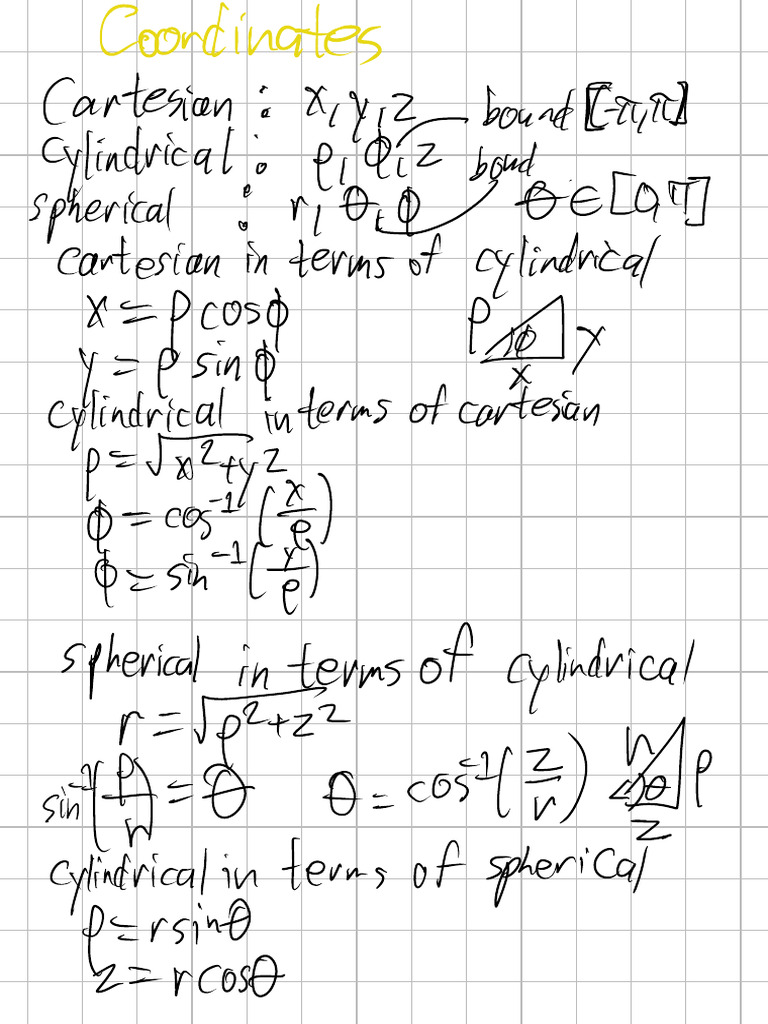 Coordinates
Cartesian : x, y, z bound [-π, π]
cylindrical : ρ, ϕ, z bound
spherical : r, θ, ϕ θ ∈ [0, π]
cartesian in terms of cylindrical
x = ρ cosϕ ρ ϕ y
y = ρ sin ϕ x
cylindrical in terms of cartesian
ρ = √(x²+y²)
ϕ = cos⁻¹(x/ρ)
ϕ = sin⁻¹(y/ρ)
spherical in terms of cylindrical
r = √(ρ²+z²)
sin⁻¹(ρ/r) = θ θ = cos⁻¹(z/r) r θ ρ z
cylindrical in terms of spherical
ρ = r sinθ
z = r cosθ